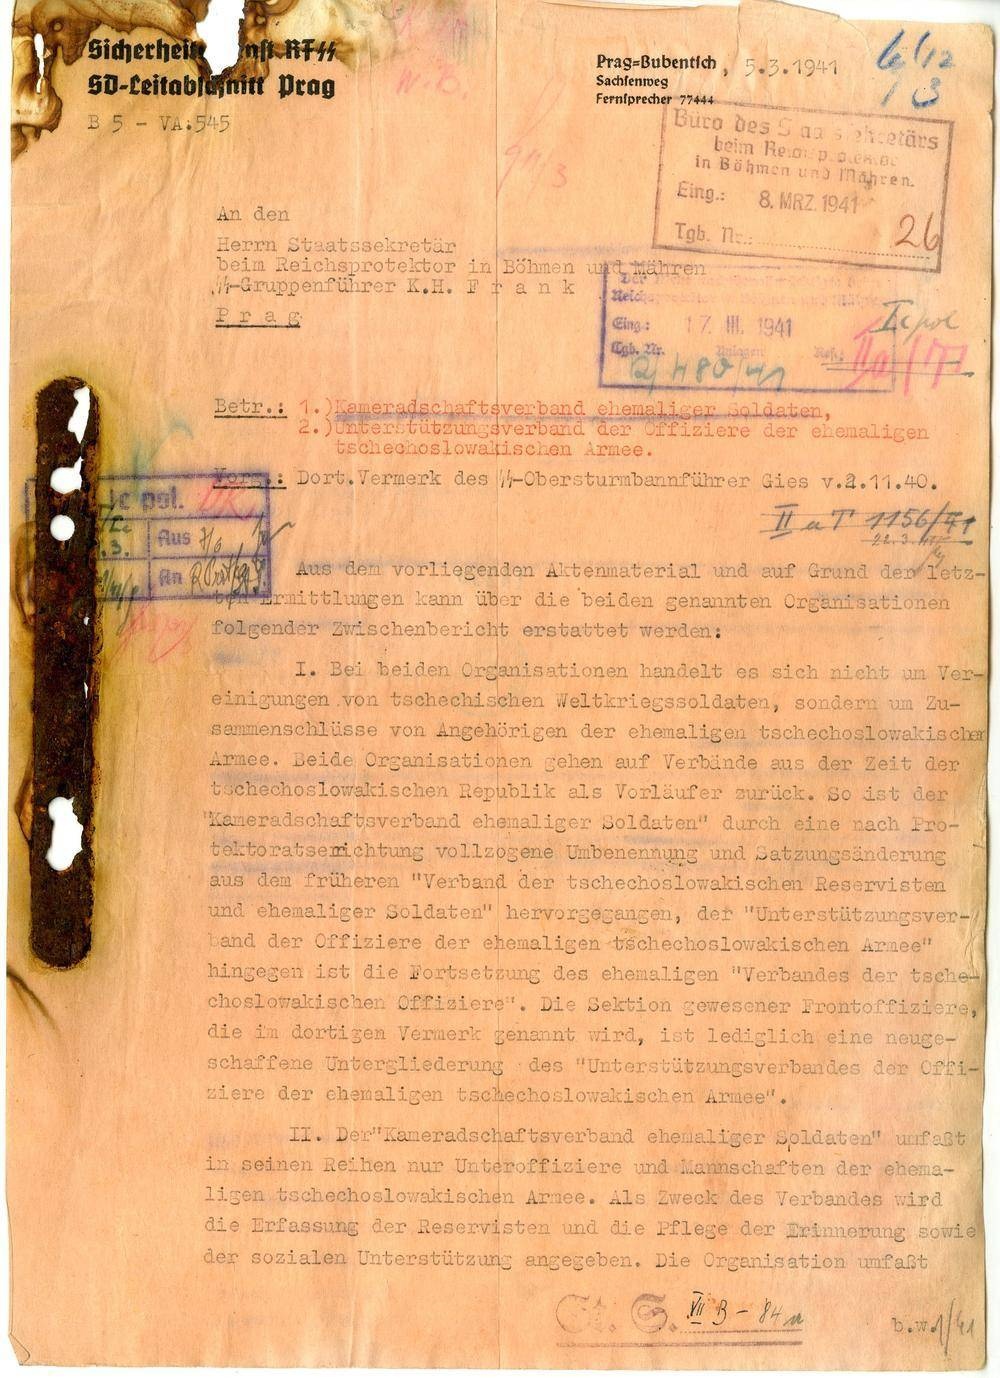 Sicherheitsdienst RFSS
SD-Leitabschnitt Prag
B 5 - VA:545
Prag=Bubentsch, 5.3.1941
Sachsenweg
Fernsprecher 77444
6/12
Büro des Staatssekretärs
beim Reichsprotektor
in Böhmen und Mähren.
Eing.: 8. MRZ. 1941
Tgb. Nr.: 26
An den
Herrn Staatssekretär
beim Reichsprotektor in Böhmen und Mähren
SS-Gruppenführer K.H. F r a n k
P r a g
Eing.: 17. III. 1941
Tgb. Nr. Anlagen Ref.:
Betr.: 1.)Kameradschaftsverband ehemaliger Soldaten,
2.)Unterstützungsverband der Offiziere der ehemaligen
tschechoslowakischen Armee.
Vorg.: Dort.Vermerk des SS-Obersturmbannführer Gies v.2.11.40.
II a T 1156/41
Ic pol.
Aus
An
Aus dem vorliegenden Aktenmaterial und auf Grund der letz-
ten Ermittlungen kann über die beiden genannten Organisationen
folgender Zwischenbericht erstattet werden:
I. Bei beiden Organisationen handelt es sich nicht um Ver-
einigungen von tschechischen Weltkriegssoldaten, sondern um Zu-
sammenschlüsse von Angehörigen der ehemaligen tschechoslowakischen
Armee. Beide Organisationen gehen auf Verbände aus der Zeit der
tschechoslowakischen Republik als Vorläufer zurück. So ist der
"Kameradschaftsverband ehemaliger Soldaten" durch eine nach Pro-
tektoratserrichtung vollzogene Umbenennung und Satzungsänderung
aus dem früheren "Verband der tschechoslowakischen Reservisten
und ehemaliger Soldaten" hervorgegangen, der "Unterstützungsver-
band der Offiziere der ehemaligen tschechoslowakischen Armee"
hingegen ist die Fortsetzung des ehemaligen "Verbandes der tsche-
choslowakischen Offiziere". Die Sektion gewesener Frontoffiziere,
die im dortigen Vermerk genannt wird, ist lediglich eine neuge-
schaffene Untergliederung des "Unterstützungsverbandes der Offi-
ziere der ehemaligen tschechoslowakischen Armee".
II. Der"Kameradschaftsverband ehemaliger Soldaten" umfaßt
in seinen Reihen nur Unteroffiziere und Mannschaften der ehema-
ligen tschechoslowakischen Armee. Als Zweck des Verbandes wird
die Erfassung der Reservisten und die Pflege der Erinnerung sowie
der sozialen Unterstützung angegeben. Die Organisation umfaßt
St. S. VII B - 84 a
b.w.